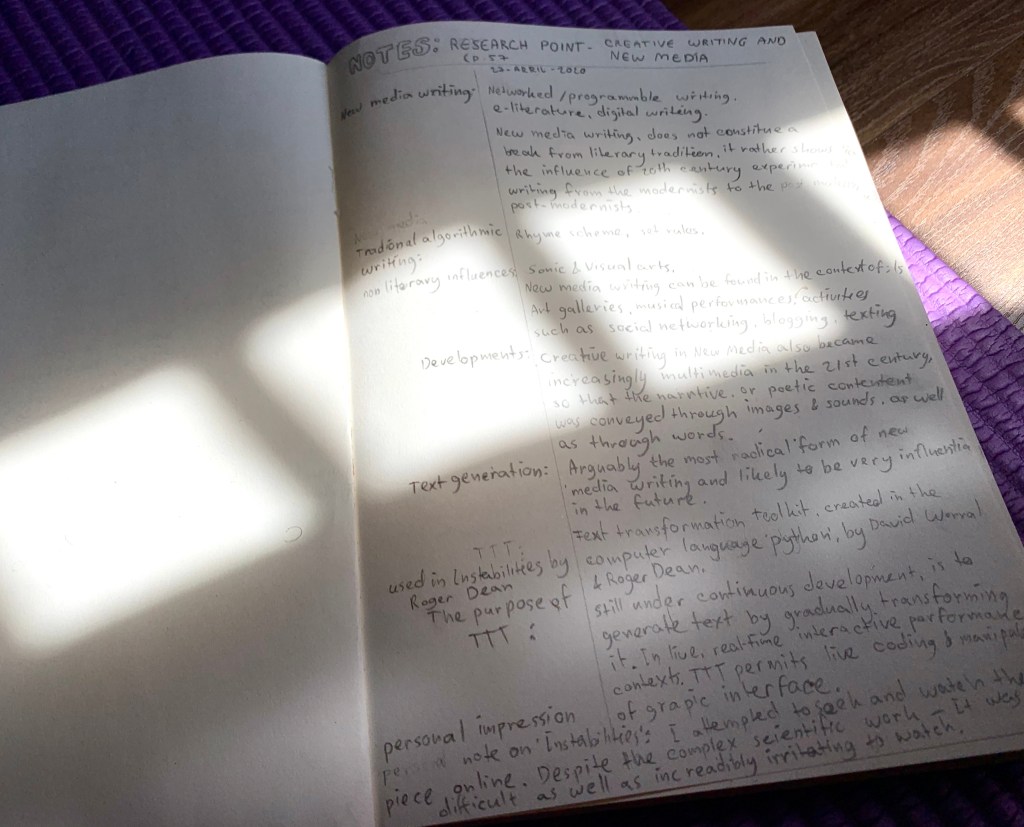 NOTES: RESEARCH POINT - CREATIVE WRITING AND
NEW MEDIA
CD. 57
27-APRIL-2020
New media writing: Networked/programmable writing.
e-literature, digital writing.
New media writing, does not constitute a
break from literary tradition, it rather shows
the influence of 20th century experim
writing from the modernists to the
post-modernists
Tradional algorithmic Rhyme scheme, set rules.
writing:
non literary influences: Sonic & Visual arts.
New media writing can be found in the context of:
Art galleries, musical performances, activities
such as social networking, blogging, texting
Developments: Creative writing in New Media also became
increasingly multimedia in the 21st century,
so that the narrtive or poetic
was conveyed through images & sounds, as well
as through words.
Text generation: Arguably the most radical form of new
media writing and likely to be very influentia
in the future.
TTT: Text transformation Toolkit, created in the
used in Instabilities by computer language 'python', by David Worral
Roger Dean & Roger Dean.
The purpose of still under continuous development, is to
TTT: generate text by gradually transforming
it. In live, real-time interactive performane
contexts, TTT permits live coding & manipul
of grapic interface.
personal impression
note on 'Instabilities': I atempted to seek and watch the
piece online. Despite the complex scientific work - It was
difficult as well as increadibly irritating to watch.